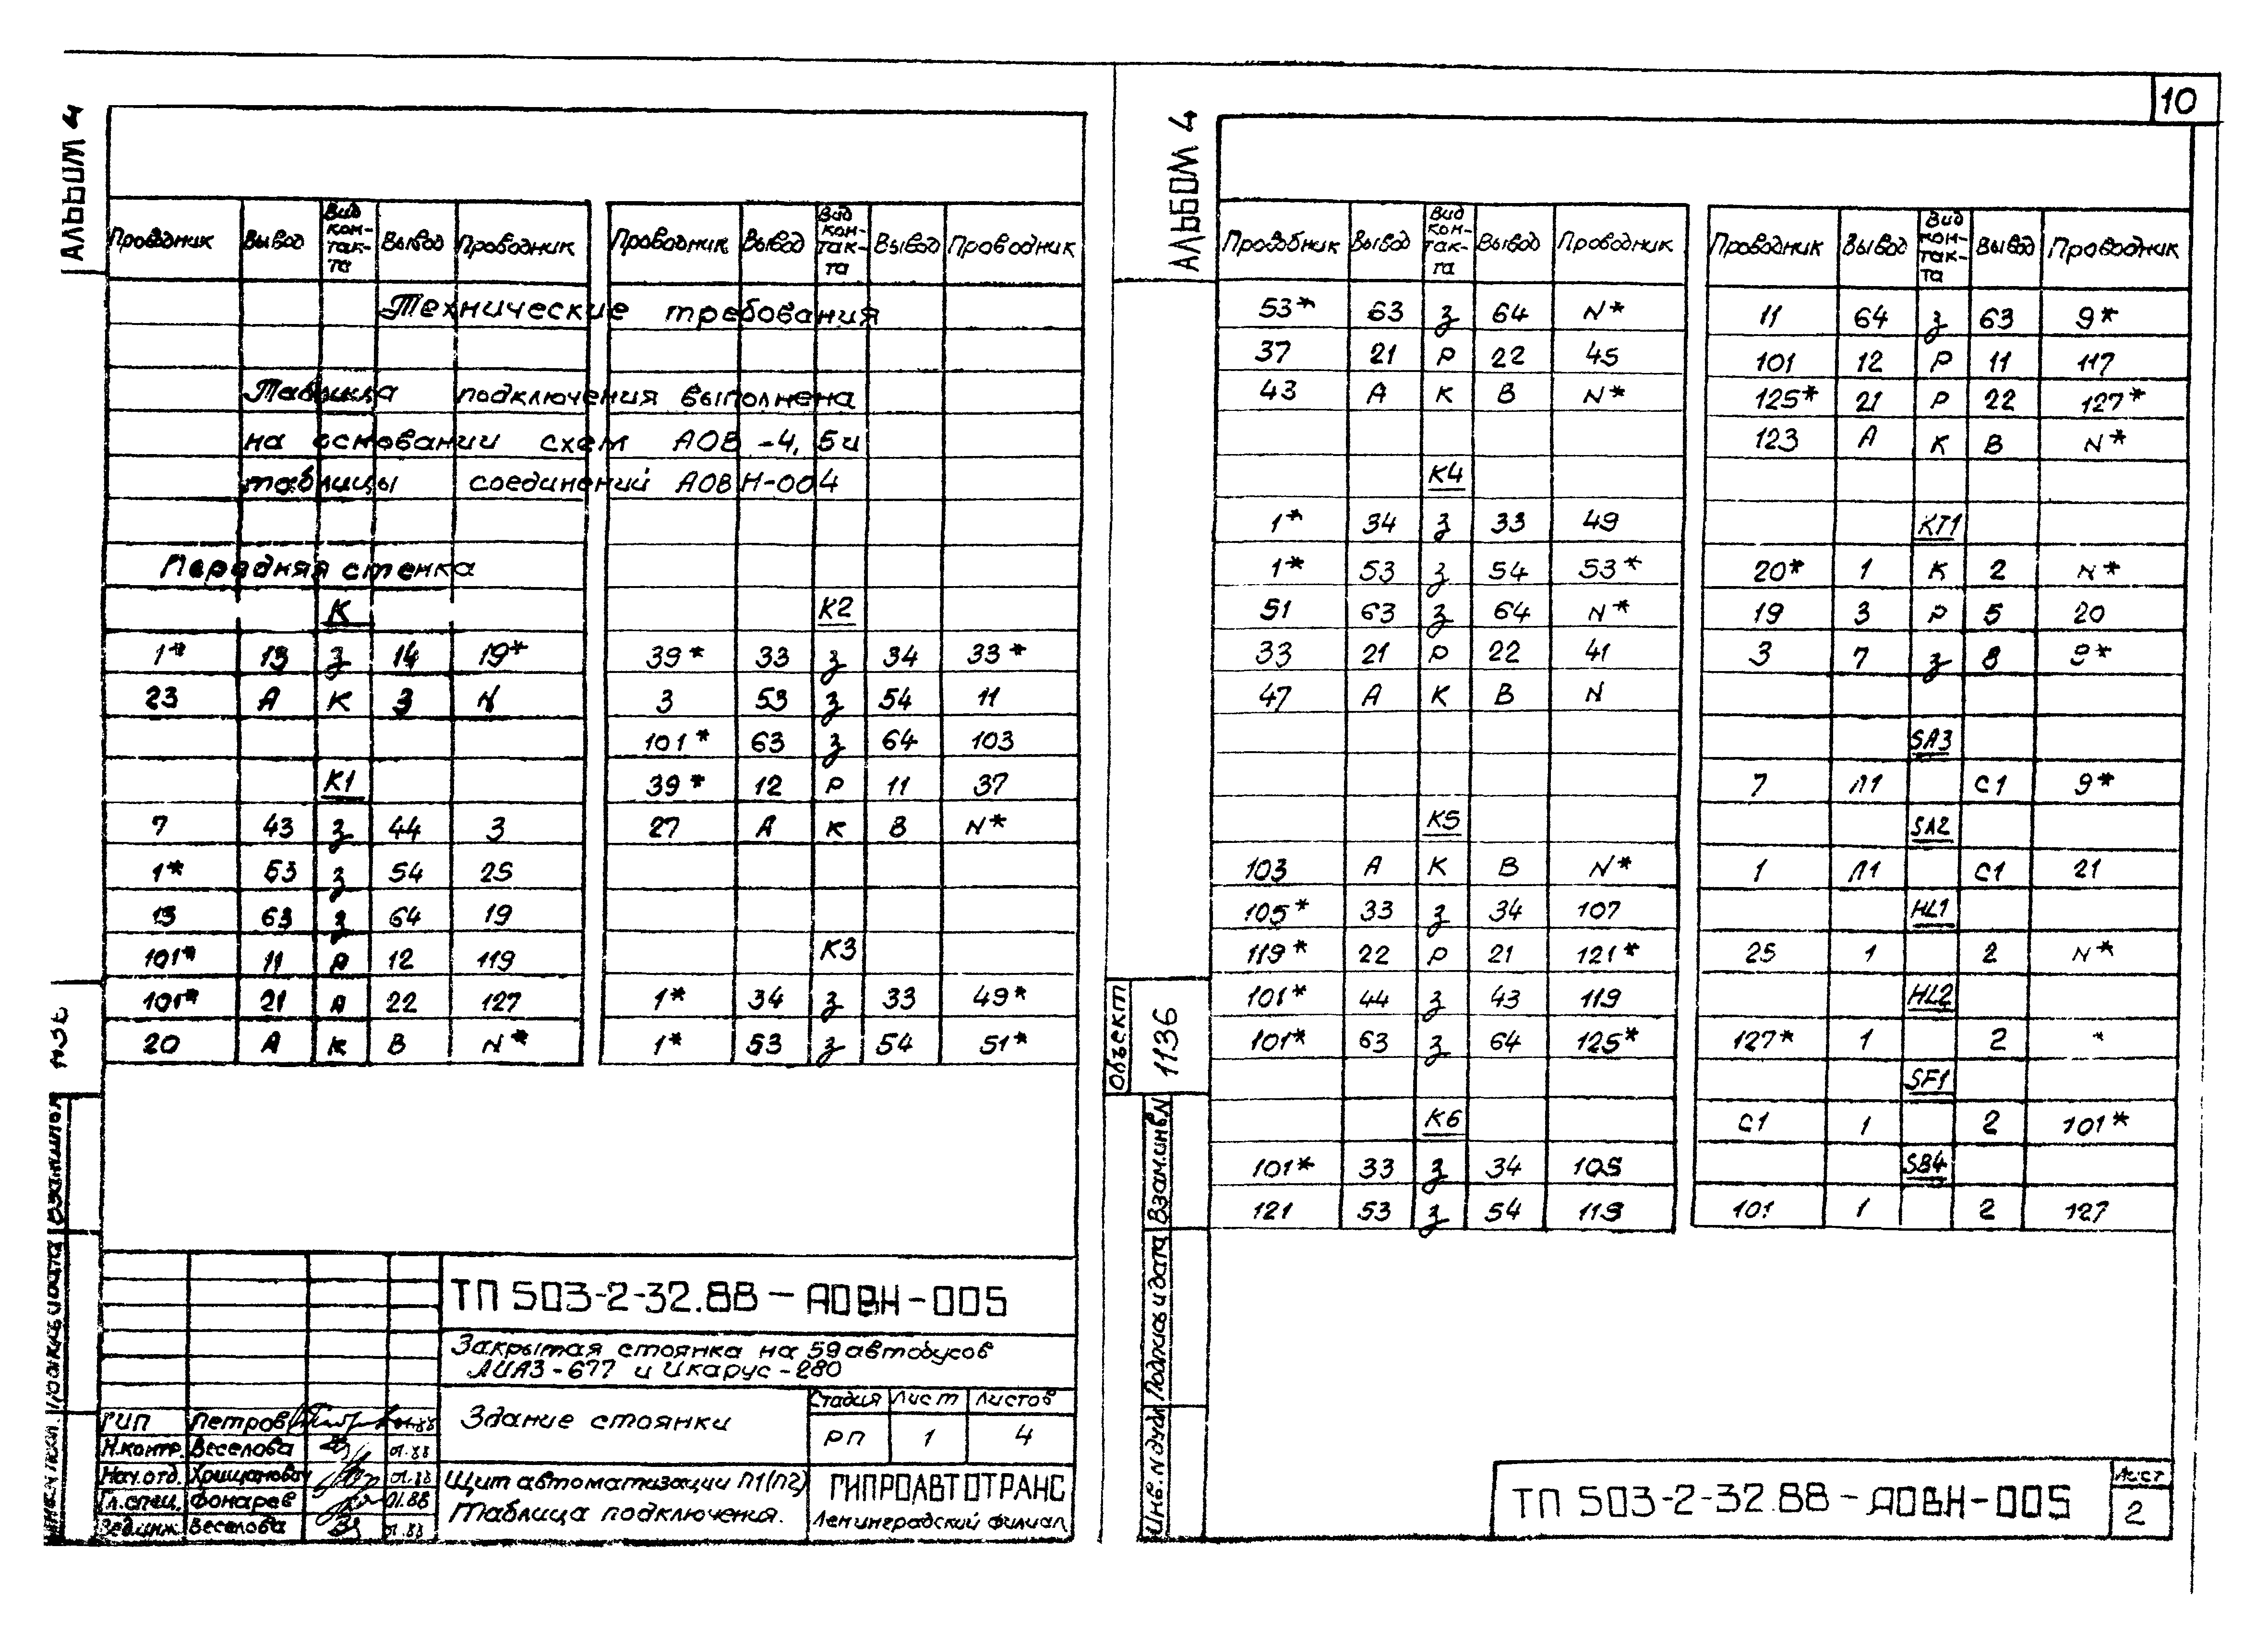 Альбом 4
Проводник Вывод Вид кон-так-та Вывод Проводник
Технические требования
Таблица подключения выполнена
на основании схем АОВ-4,5 и
таблицы соединений АОВН-004
Передняя стенка
К
1* 13 з 14 19*
23 А К N
К1
7 43 з 44 3
1* 53 з 54 25
13 63 з 64 19
101* 11 Р 12 119
101* 21 22 127
20 А К В N*
Проводник Вывод Вид кон-так-та Вывод Проводник
К2
39* 33 з 34 33*
3 53 з 54 11
101* 63 з 64 103
39* 12 Р 11 37
27 А К В N*
К3
1* 34 з 33 49*
1* 53 з 54 51*
ТП 503-2-32.88-АОВН-005
Закрытая стоянка на 59 автобусов
ЛИАЗ-677 и Икарус-280
Здание стоянки
Стадия Лист Листов
РП 1 4
Щит автоматизации П1(П2)
Таблица подключения.
ГИПРОАВТОТРАНС
Ленинградский филиал
ГИП Петров 01.88
Н.контр. Веселова 01.88
Нач.отд. 01.88
Гл.спец. Фонарев 01.88
Вед.инж. Веселова 01.88
10
Альбом 4
Проводник Вывод Вид кон-так-та Вывод Проводник
53* 63 з 64 N*
37 21 Р 22 45
43 А К В N*
К4
1* 34 з 33 49
1* 53 з 54 53*
51 63 з 64 N*
33 21 Р 22 41
47 А К В N
К5
103 А К В N*
105* 33 з 34 107
119* 22 Р 21 121*
101* 44 з 43 119
101* 63 з 64 125*
К6
101* 33 з 34 105
121 53 з 54 119
Проводник Вывод Вид кон-так-та Вывод Проводник
11 64 з 63 9*
101 12 Р 11 117
125* 21 Р 22 127*
123 А К В N*
КТ1
20* 1 К 2 N*
19 3 Р 5 20
3 7 з 8 9*
SA3
7 Л1 С1 9*
SA2
1 Л1 С1 21
HL1
25 1 2 N*
HL2
127* 1 2 *
SF1
С1 1 2 101*
SB4
101 1 2 127
Объект
1136
Взам.инв.N
Подпись и дата
Инв.N дубл
ТП 503-2-32.88-АОВН-005
Лист
2